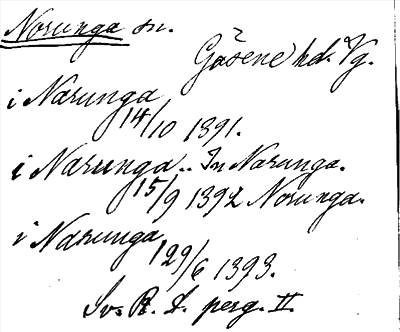 Norunga sn.
Gäsene hd. Vg.
i Narunga
14/10 1391.
i Narunga.. In Narunga.
15/9 1392 Norunga.
i Narunga
29/6 1393.
Sv. R. A. perg. II.